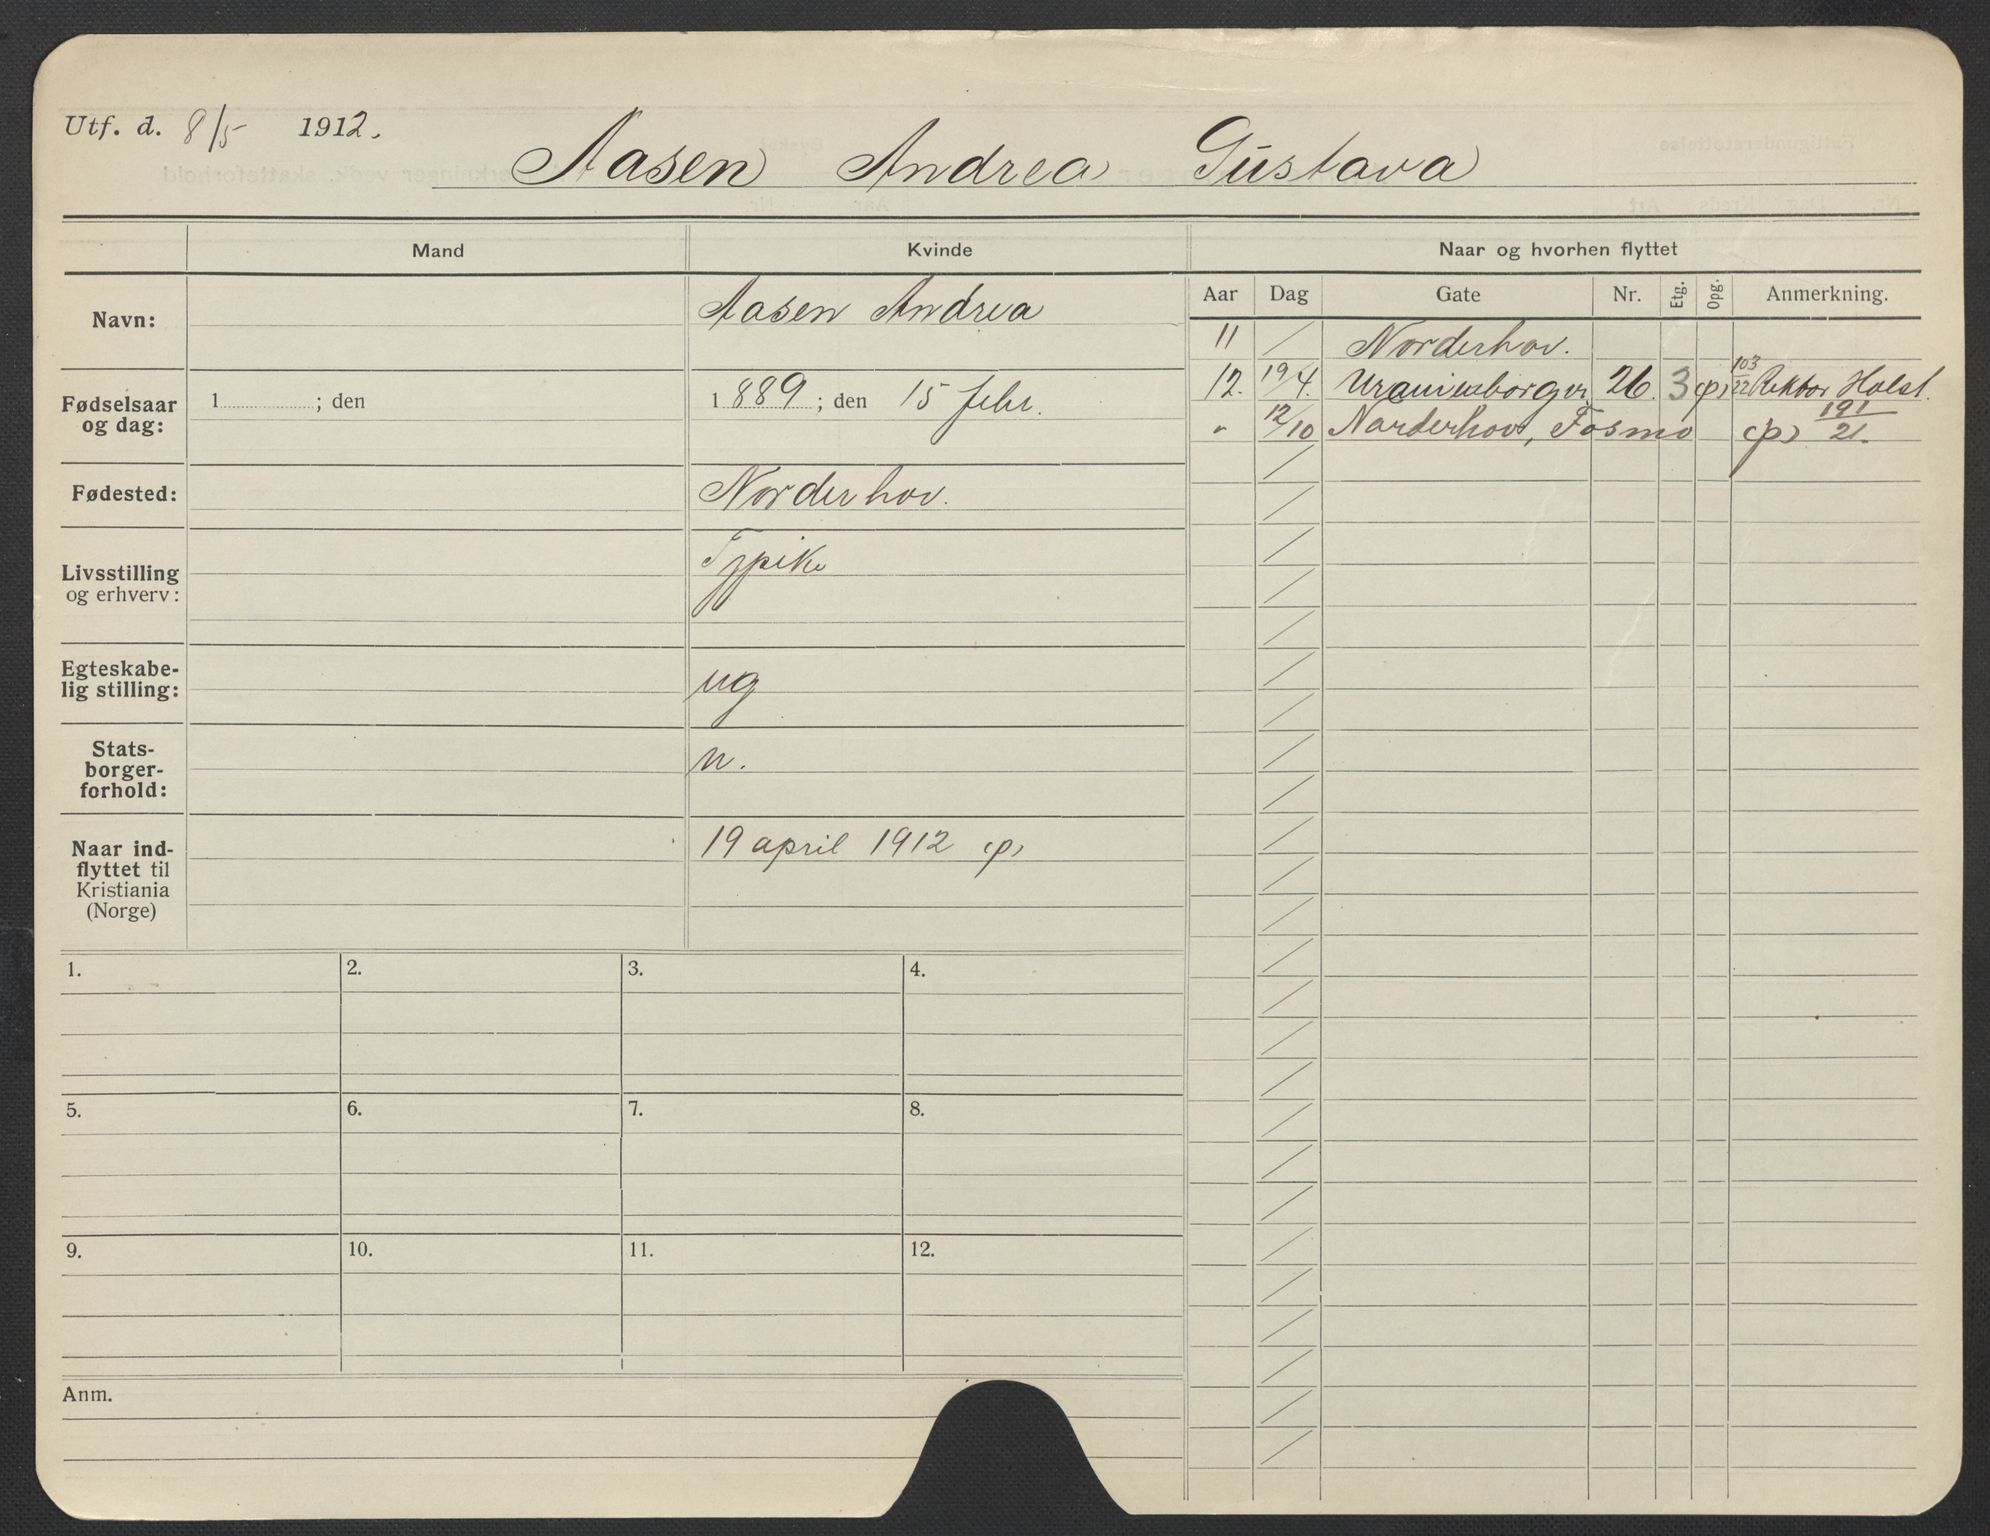 Utf. d. 8/5 1912.
Aasen Andrea Gustava
Mand
Kvinde
Naar og hvorhen flyttet
Navn:
Aasen Andrea
Fødselsaar og dag:
1 ; den
1889 ; den 15 febr.
Fødested:
Norderhov.
Livsstilling og erhverv:
Tjpike
Egteskabe-
lig stilling:
ug
Stats-
borger-
forhold:
n.
Naar ind-
flyttet til
Kristiania
(Norge)
19 april 1912 (p)
Aar Dag Gate Nr. Etg. Opg. Anmerkning.
11 / Norderhov.
12. 19/4. Uranienborgv. 26. 3 (p) 103/22 Rektor Holst.
" 12/10 Norderhov, Fosmo (p) 191/21.
1. 2. 3. 4.
5. 6. 7. 8.
9. 10. 11. 12.
Anm.